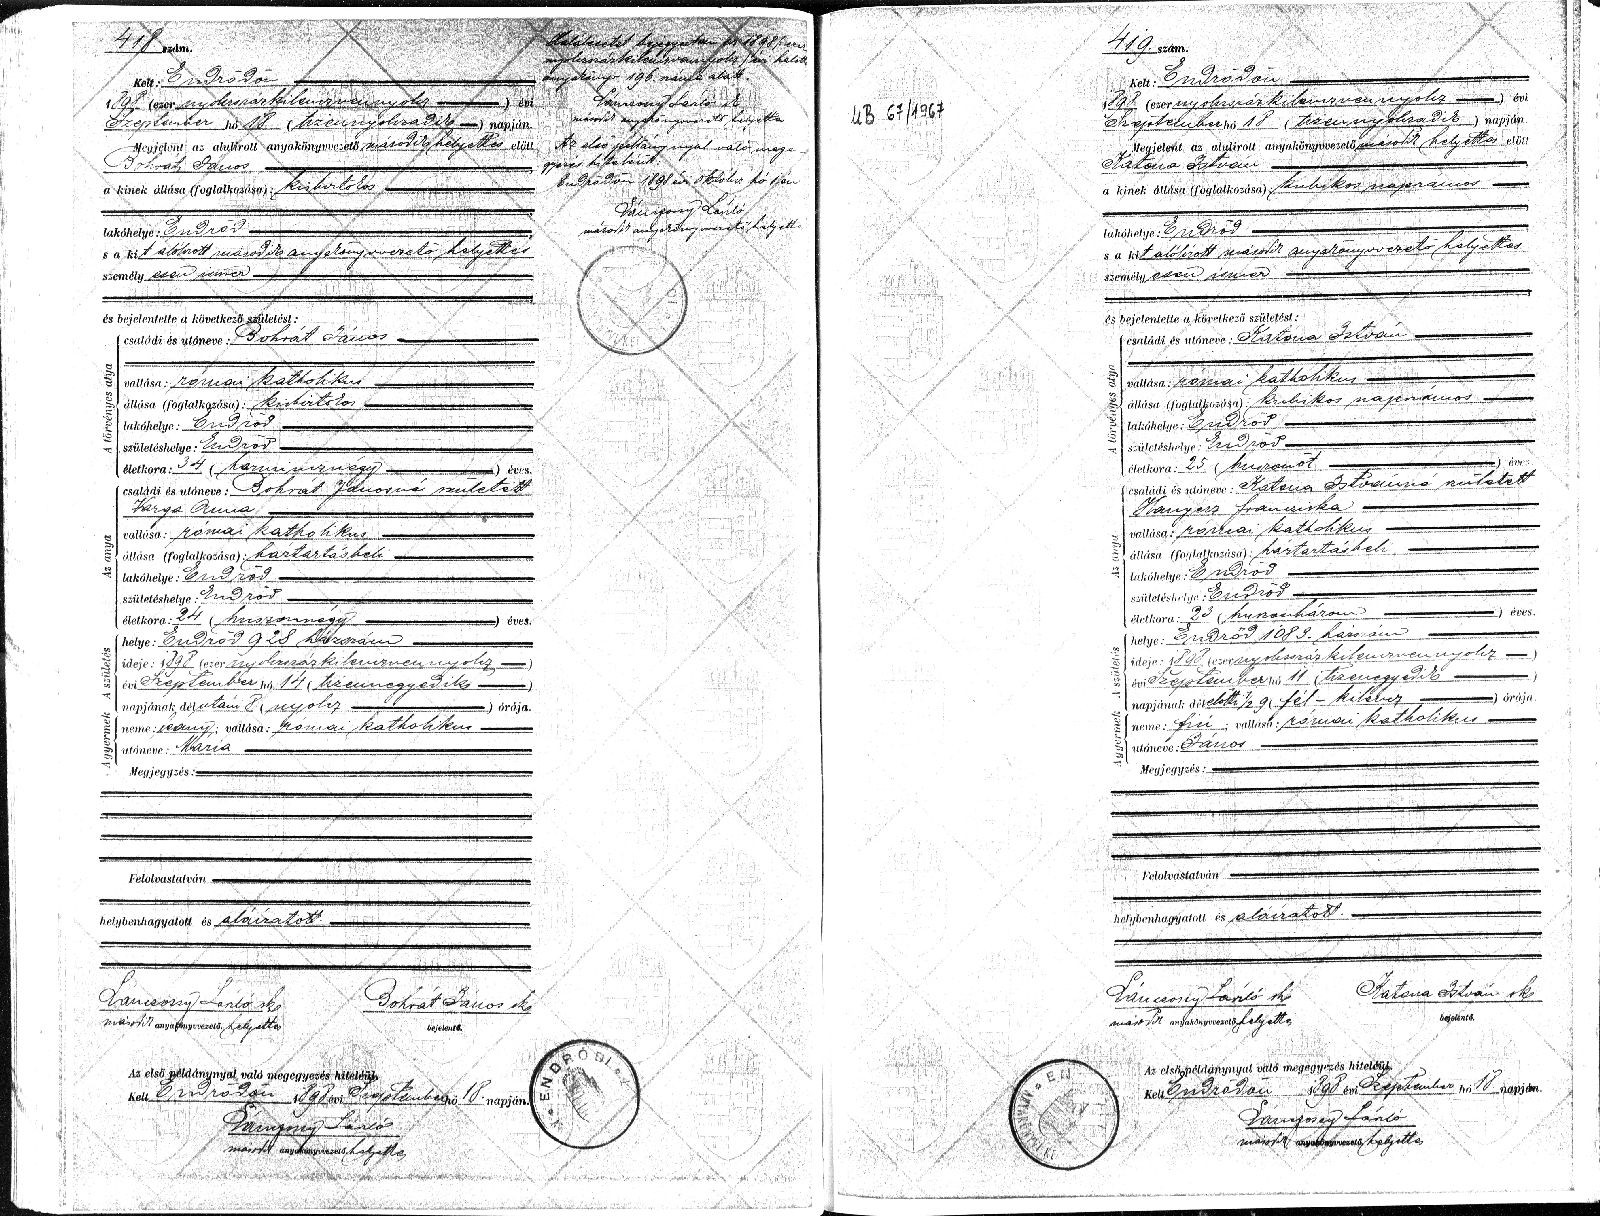 418 szám.
Kelt: Endrődön
1898 (ezer nyolczszázkilenczvennyolcz) évi
Szeptember hó 18 (tizennyolczadik) napján.
Megjelent az alulírott anyakönyvvezető második helyettes előtt
Bohrát János
a kinek állása (foglalkozása):
lakóhelye: Endrőd
s a kit alólírott második anyakönyvvezető helyettes
személyesen ismer
és bejelentette a következő születést:
A törvényes atya
családi és utóneve: Bohrát János
vallása: római katholikus
állása (foglalkozása):
lakóhelye: Endrőd
születéshelye: Endrőd
életkora: 34 (harmincznégy) éves.
Az anya
családi és utóneve: Bohrát Jánosné született
Varga Anna
vallása: római katholikus
állása (foglalkozása): háztartásbeli
lakóhelye: Endrőd
születéshelye: Endrőd
életkora: 24 (huszonnégy) éves.
A születés
helye: Endrőd 928 házszám
ideje: 1898 (ezer nyolczszázkilenczvennyolcz)
évi Szeptember hó 14 (tizennegyedik)
napjának délutáni 8 (nyolcz) órája.
A gyermek
neme: leány; vallása: római katholikus
utóneve: Mária
Megjegyzés:
Felolvastatván
helybenhagyatott és aláíratott
Lánczosy László sk Bohrát János sk
másodk anyakönyvvezető helyettes bejelentő.
Az első példánynyal való megegyezés hiteléül.
Kelt Endrődön 1898 évi Szeptember hó 18 napján.
Lánczosy László
másodk anyakönyvvezető helyettes
ENDRŐDI
nyolczszázkilenczvennyolcz
anyakönyv 196
Lánczosy László sk
másodk anyakönyvvezető helyettes
Az első példánynyal való meg-
egyezés hiteléül.
Endrődön 1898 évi október hó
Lánczosy László
másodk anyakönyvvezető helyettes
UB 67/1967
419 szám.
Kelt: Endrődön
1898 (ezer nyolczszázkilenczvennyolcz) évi
Szeptember hó 18 (tizennyolczadik) napján.
Megjelent az alulírott anyakönyvvezető másodk helyettes előtt
Katona István
a kinek állása (foglalkozása): kubikos napszámos
lakóhelye: Endrőd
s a kit alólírott másodk anyakönyvvezető helyettes
személyesen ismer
és bejelentette a következő születést:
A törvényes atya
családi és utóneve: Katona István
vallása: római katholikus
állása (foglalkozása): kubikos napszámos
lakóhelye: Endrőd
születéshelye: Endrőd
életkora: 25 (huszonöt) éves.
Az anya
családi és utóneve: Katona Istvánné született
Hanyecz Franciska
vallása: római katholikus
állása (foglalkozása): háztartásbeli
lakóhelye: Endrőd
születéshelye: Endrőd
életkora: 23 (huszonhárom) éves.
A születés
helye: Endrőd 1083. házszám
ideje: 1898 (ezer nyolczszázkilenczvennyolcz)
évi Szeptember hó 11 (tizenegyedik)
napjának délelőtti 1/2 9 (fél-kilencz) órája.
A gyermek
neme: fiú; vallása: római katholikus
utóneve: János
Megjegyzés:
Felolvastatván
helybenhagyatott és aláíratott.
Lánczosy László sk Katona István sk
másodk anyakönyvvezető helyettes bejelentő.
Az első példánynyal való megegyezés hiteléül.
Kelt Endrődön 1898 évi Szeptember hó 18 napján.
Lánczosy László
másodk anyakönyvvezető helyettes